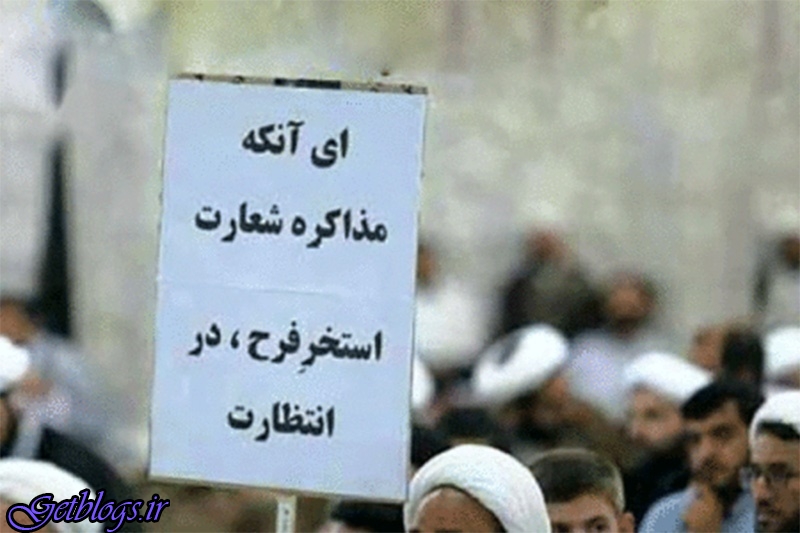 ای آنکه
مذاکره شعارت
استخرِفرح ، در
انتظارت
Getblogs.ir